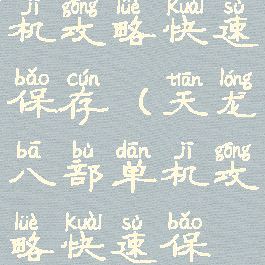 jī gōng lüè kuài sù
机攻略快速
bǎo cún tiān lóng
保存(天龙
bā bù dān jī gōng
八部单机攻
lüè kuài sù bǎo
略快速保